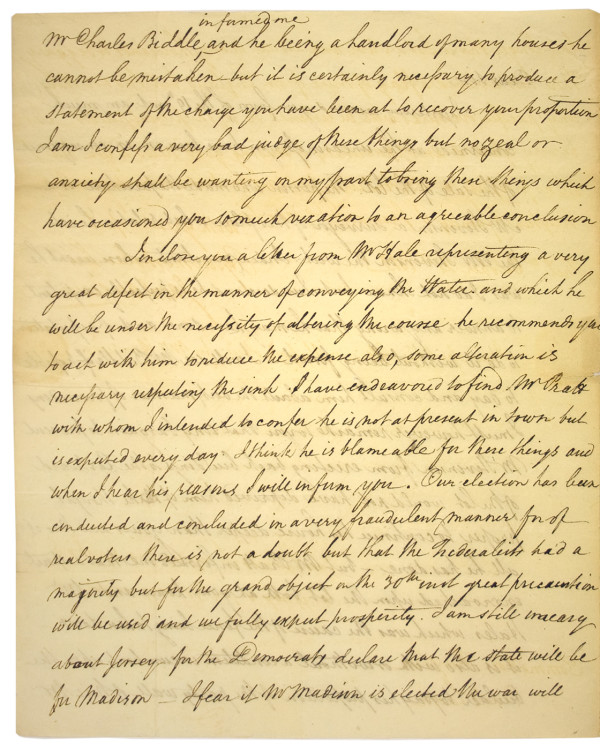 informed me
Mr Charles Biddle and he being a handlord of many houses he
cannot be mistaken but it is certainly necessary to produce a
statement of the charge you have been at to recover your proportion
I am I confess a very bad judge of these things but no zeal or
anxiety shall be wanting on my part to bring these things which
have occasioned you so much vexation to an agreeable conclusion
I inclose you a letter from Mr Hale representing a very
great defect in the manner of conveying the Water and which he
will be under the necessity of altering the course he recommends you
to act with him to reduce the expense also, some alteration is
necessary respecting the sink I have endeavoured to find Mr Pratt
with whom I intended to confer he is not at present in town but
is expected every day I think he is blameable for these things and
when I hear his reasons I will inform you. Our election has been
conducted and concluded in a very fraudulent manner for of
real voters there is not a doubt but that the Federalists had a
majority but for the grand object on the 30th inst great precaution
will be used and we fully expect prosperity. I am still uneasy
about Jersey for the Democrats declare that the state will be
for Madison – I fear if Mr Madison is elected the war will